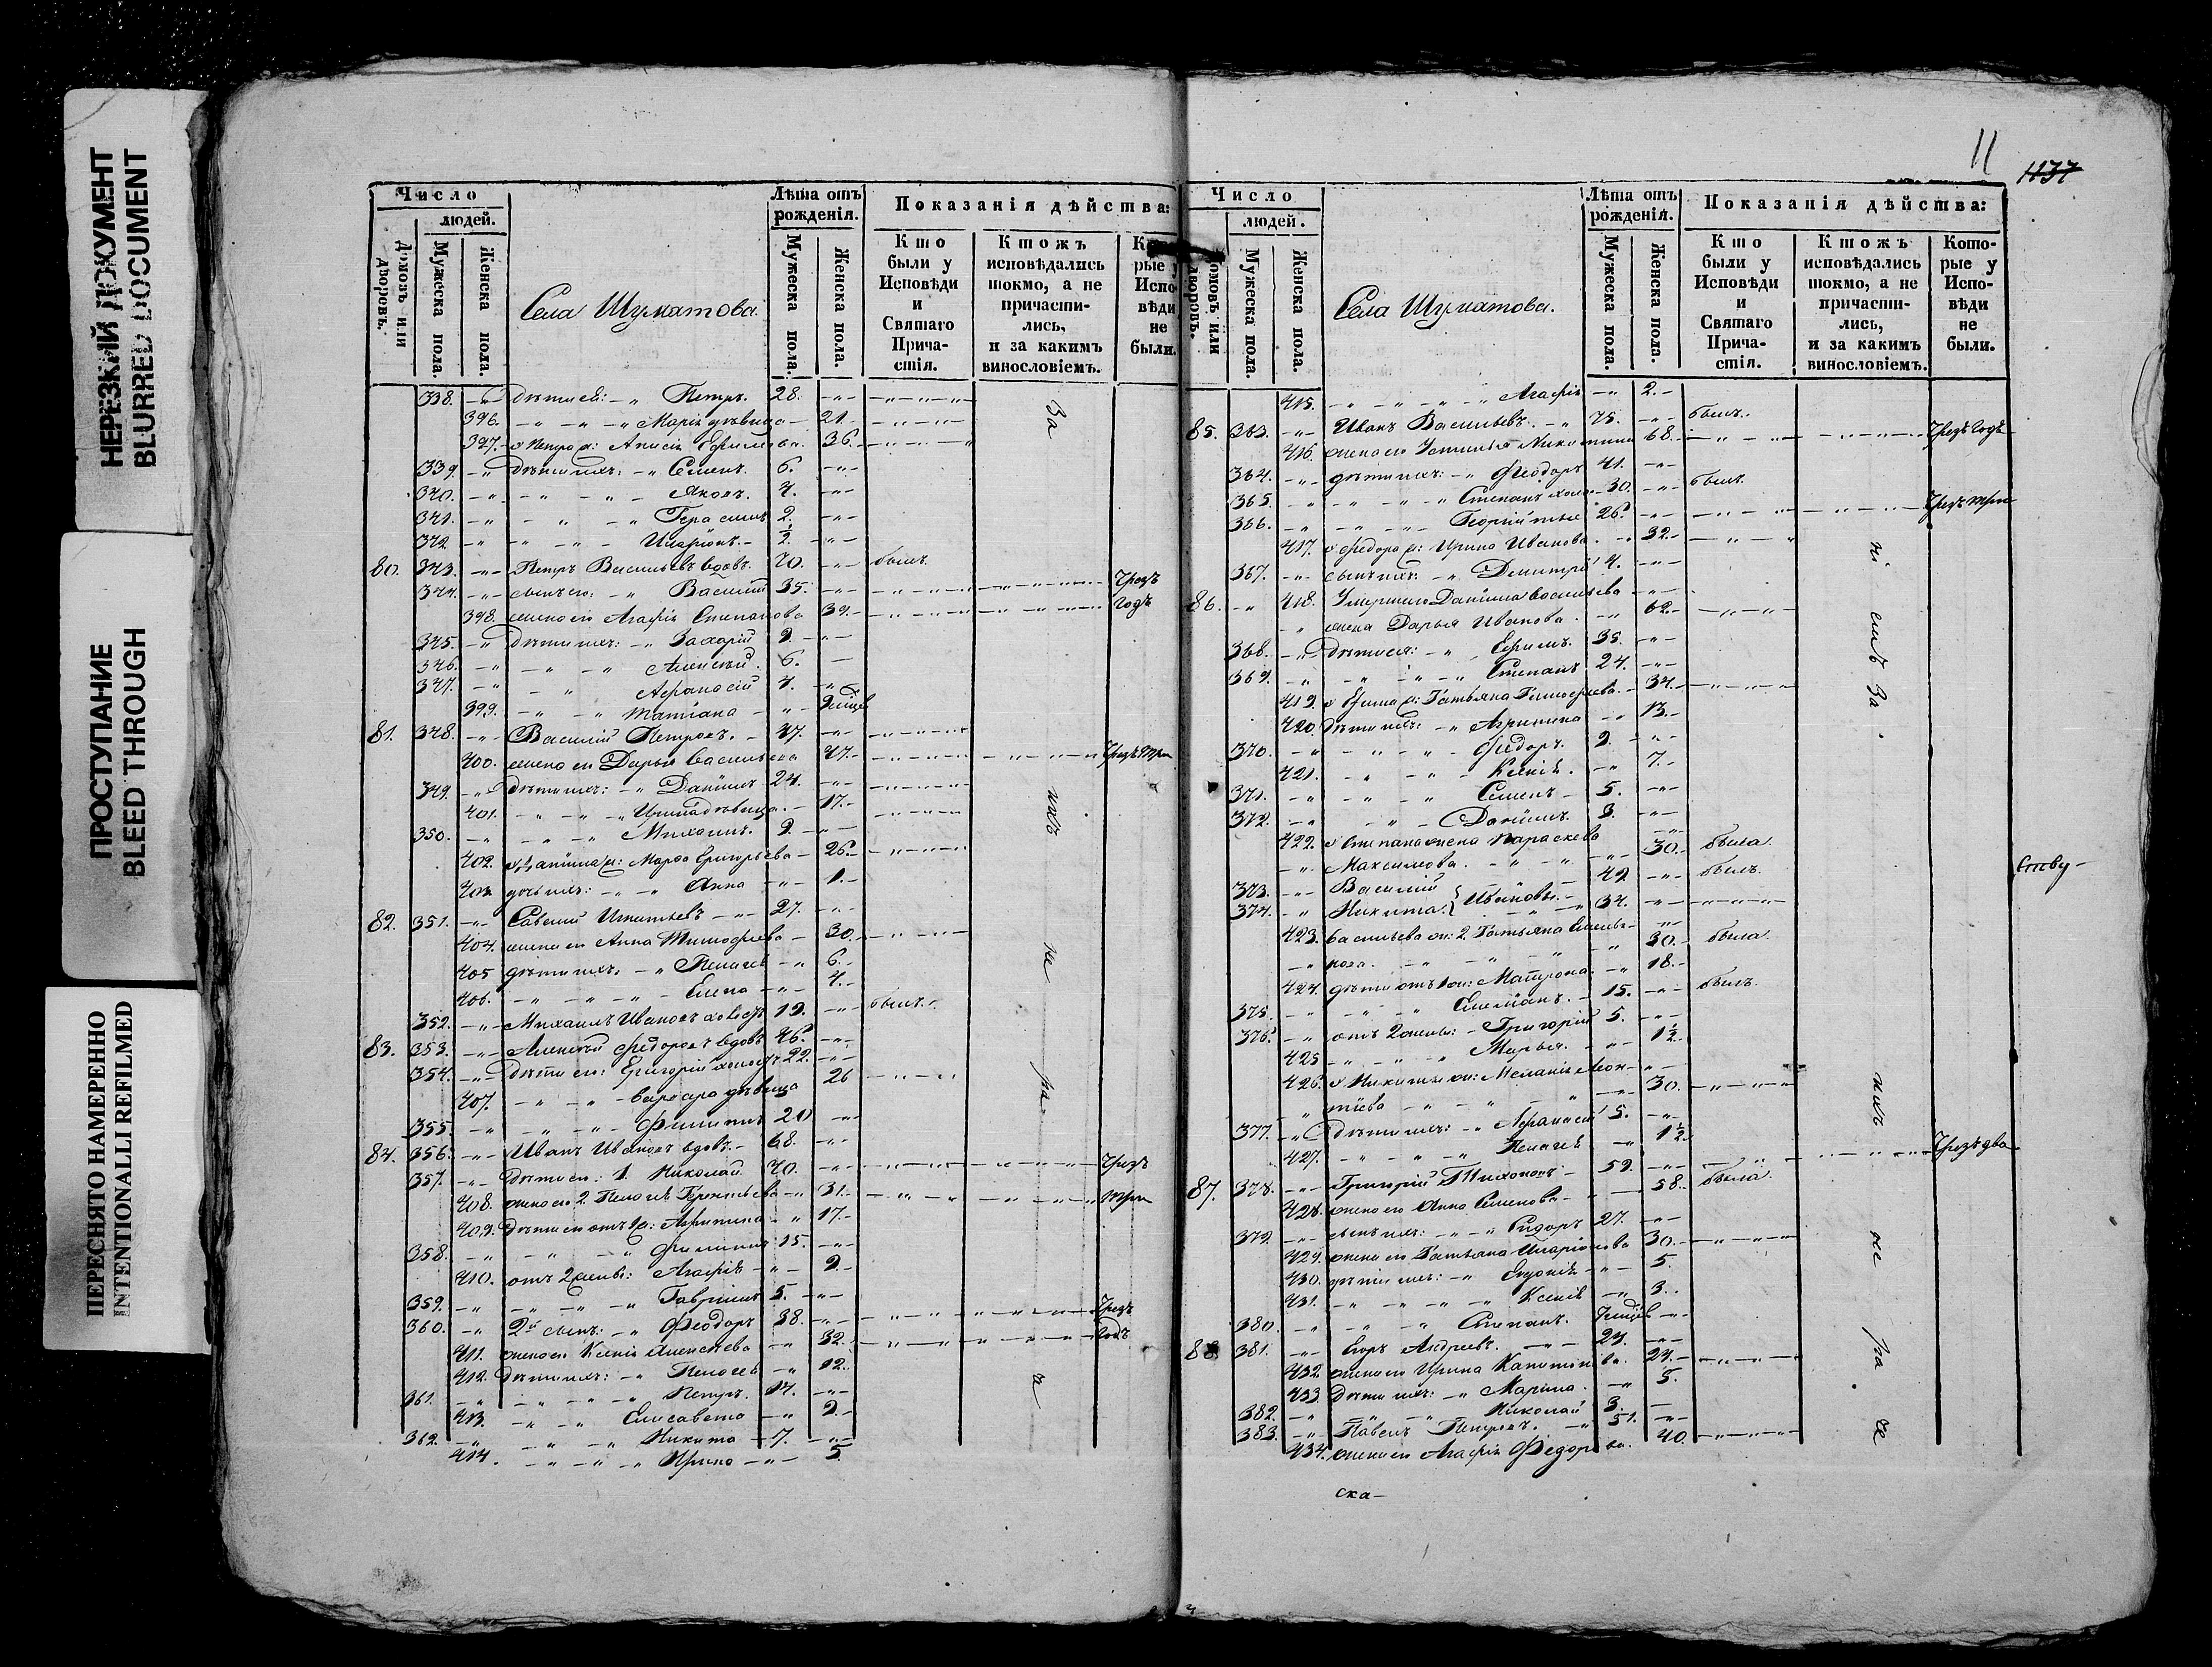 НЕРЕЗКИЙ ДОКУМЕНТ
BLURRED DOCUMENT
ПРОСТУПАНИЕ
BLEED THROUGH
ПЕРЕСНЯТО НАМЕРЕННО
INTENTIONALLI REFILMED
Число
людей.
Домовъ или дворовъ.
Мужеска пола.
Женска пола.
Села Шуматова.
Лѣта отъ рожденія.
Мужеска пола.
Женска пола.
Показанія дѣйства:
Кто были у Исповѣди и Святаго Причастія.
Ктожъ исповѣдались токмо, а не причастились, и за какимъ винословіемъ.
рые у Исповѣди не были.
338. Петръ. 28.
396. Марія дѣвица 21.
397. Петра ж: Ефимова. 36.
339. дѣти ихъ: Семенъ. 6.
340. Яковъ. 4.
341. Герасимъ 2.
342. Иларіонъ. ½
80. 343. Петръ Васильевъ вдовъ. 70. былъ.
344. сынъ его: Василій 35. Чрезъ
398. жена его Агафія Степанова 39. годъ
345. дѣти ихъ: Захарій 9.
346. Алексѣй. 6.
347. Афанасій 4.
399. Татіана
81. 348. Василій Петровъ. 47.
400. жена его Дарья Васильева 47. Чрезъ три
349. дѣти ихъ: Даніилъ 24.
401. дѣвица. 17.
350. Михаилъ. 9.
402. Даніила ж: Марфа Григорьева 26.
403. дочь ихъ: Анна 1.
82. 351. Савелій Игнатьевъ 27.
404. жена его Анна Тимофеева 30.
405. дѣти ихъ: Пелагея 6.
406. Елена 4.
352. Михаилъ Ивановъ 19. былъ.
83. 353. Алексѣй Федоровъ вдовъ 46.
354. дѣти его: Григорій холостъ 22.
407. Варвара дѣвица 26
355. Филиппъ 20
84. 356. Иванъ Ивановъ вдовъ. 68.
357. дѣти его: 1. Николай 40. Чрезъ
408. жена его 2. Пелагея Терентьева 31. три
409. дѣти его отъ 1 ж: Агрипина 17.
358. Филиппъ 15.
410. отъ 2 жены: Агафія 9.
359. Гавріилъ 5.
360. 2й сынъ: Феодоръ 38. Чрезъ
411. жена его Ксенія Алексѣева 32. годъ
412. дѣти ихъ: Пелагея 12.
361. Петръ. 14.
413. Елисавета 9.
362. Никита 7.
414. Ирина 5
За
нихъ
не
ра
11
1137
Число
людей.
Домовъ или дворовъ.
Мужеска пола.
Женска пола.
Села Шуматова.
Лѣта отъ рожденія.
Мужеска пола.
Женска пола.
Показанія дѣйства:
Кто были у Исповѣди и Святаго Причастія.
Ктожъ исповѣдались токмо, а не причастились, и за какимъ винословіемъ.
Которые у Исповѣди не были.
415. Агафія 2.
85. 363. Иванъ Васильевъ. 75. былъ.
416. жена его Устинья Никитина 68. Чрезъ годъ
364. дѣти ихъ: Феодоръ 41.
365. Степанъ 30. былъ.
366. Георгій 26. Чрезъ три
417. Федора ж: Ирина Иванова. 32.
367. сынъ ихъ: Димитрій 4.
86. 418. Умершаго Даніила Васильева
жена Дарья Иванова. 62.
368. дѣти ея: Ефимъ. 35.
369. Степанъ 24.
419. Ефима ж: Татьяна Тимофеева. 34.
420. дѣти ихъ: Агрипина 13.
370. Федоръ. 9.
421. Ксенія. 7.
371. Семенъ 5.
372. Даніилъ. 3.
422. Степана жена Параскева
Максимова. 30. была.
373. Василій 42 былъ.
374. Никита } Ивановы. 34.
423. Васильева ж: 2. Татьяна
30. была.
424. дѣти отъ 1 ж: Матрона. 18.
375. 15. былъ.
376. отъ 2 жены: Григорій 5.
425. Марья. 1½
426. Никиты ж: Меланія Леон-
тіева 30.
377. дѣти ихъ: Афанасій 5.
427. Пелагея 1½
87. 378. Григорій Тихоновъ 59. Чрезъ два
428. жена его Анна Семенова 58. была.
379. сынъ ихъ: Сидоръ 27.
429. жена его Татьяна Иларіонова 30.
430. дѣти ихъ: Евдокія 5.
431. Ксенія 3.
380. Степанъ.
88. 381. Егоръ Андреевъ. 24.
432. жена его Ирина Капитонова. 24.
433. дѣти ихъ: Марина. 5.
382. Николай 3.
383. Павелъ Петровъ. 51.
434. жена его Агафія Федорова. 40.
За
нихъ
не
ра
ству
ска-